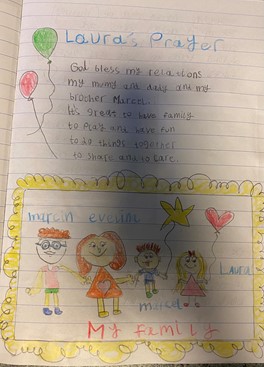 Laura's Prayer
God bless my relations
my mumy and dady and my
brother March.
It's great to have family
to Play and have fun
to do things together
to share and to care.
marcin eveline
Laura
My family